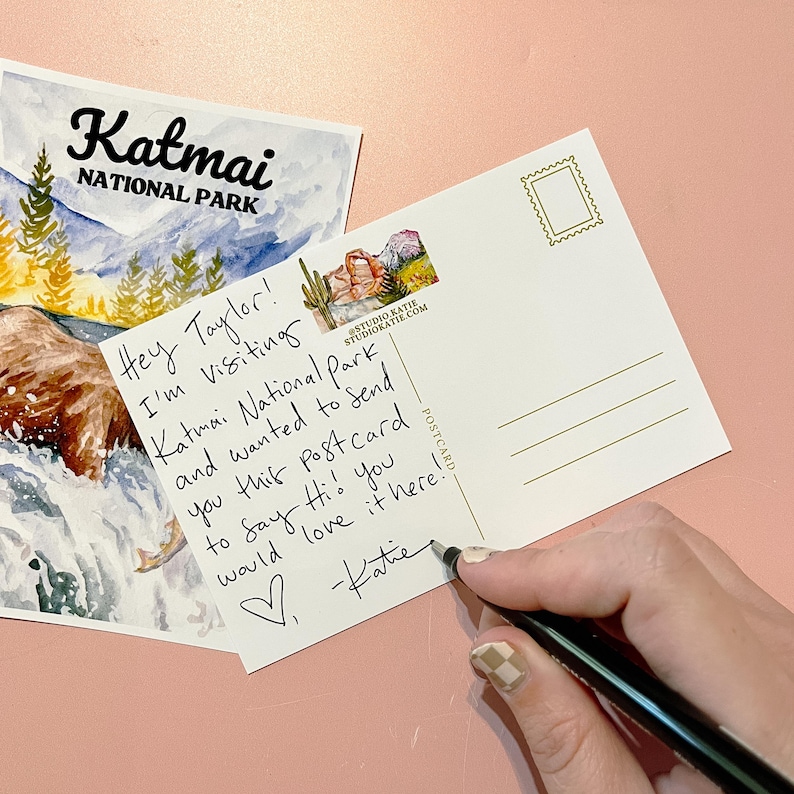 Katmai
NATIONAL PARK
@STUDIO.KATIE
STUDIOKATIE.COM
Hey Taylor!
I'm visiting
Katmai National Park
and wanted to send
you this postcard
to say Hi! You
would love it here!
-Katie
POSTCARD